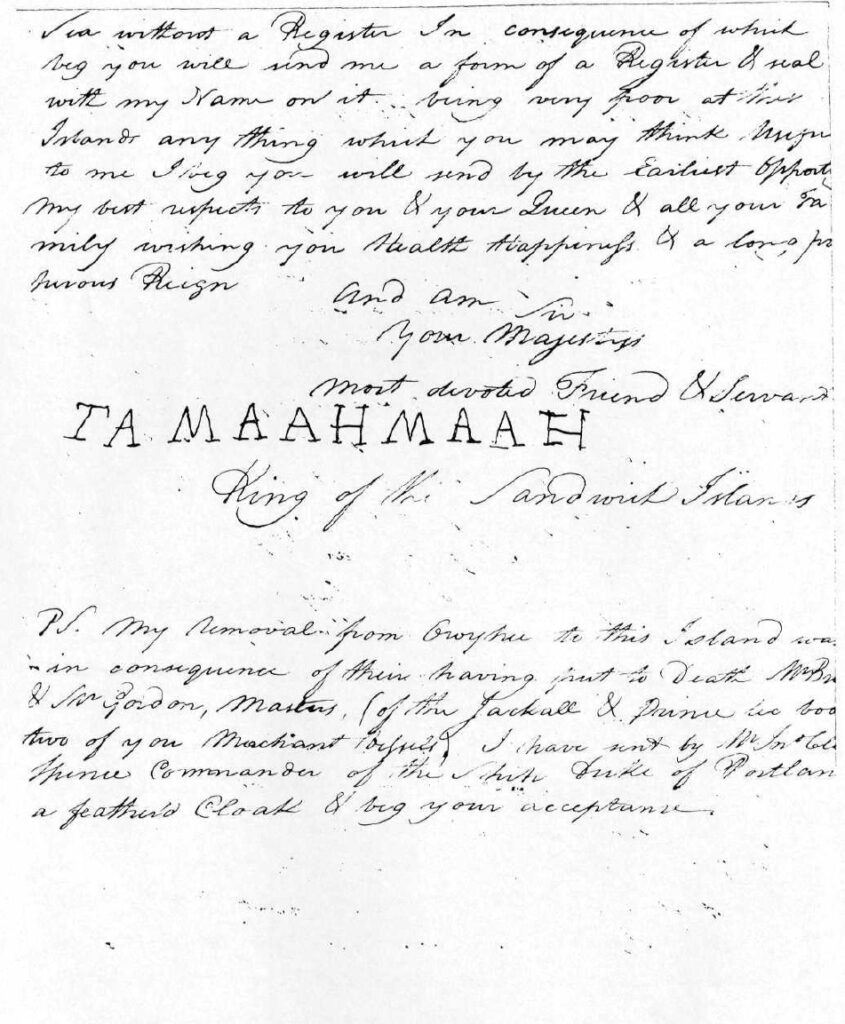 Sea without a Register In consequence of which
beg you will send me a form of a Register & seal
with my Name on it. being very poor at this
Islands any thing which you may think
to me I beg you will send by the Earliest Opport
My best respects to you & your Queen & all your Fa
mily wishing you Health Happiness & a long
Reign
And am
Sir
Your Majestys
most devoted Friend & Servant
TAMAAHMAAH
King of the Sandwich Islands
PS. My Removal from Owyhee to this Island was
in consequence of their having put to Death Mr Br
& Mr Gordon, Masters, (of the Jackall & Prince Lee boo
two of you Merchant Vessels) I have sent by Mr
Spence Commander of the Ship Duke of Portlan
a feather'd Cloak & beg your acceptance.